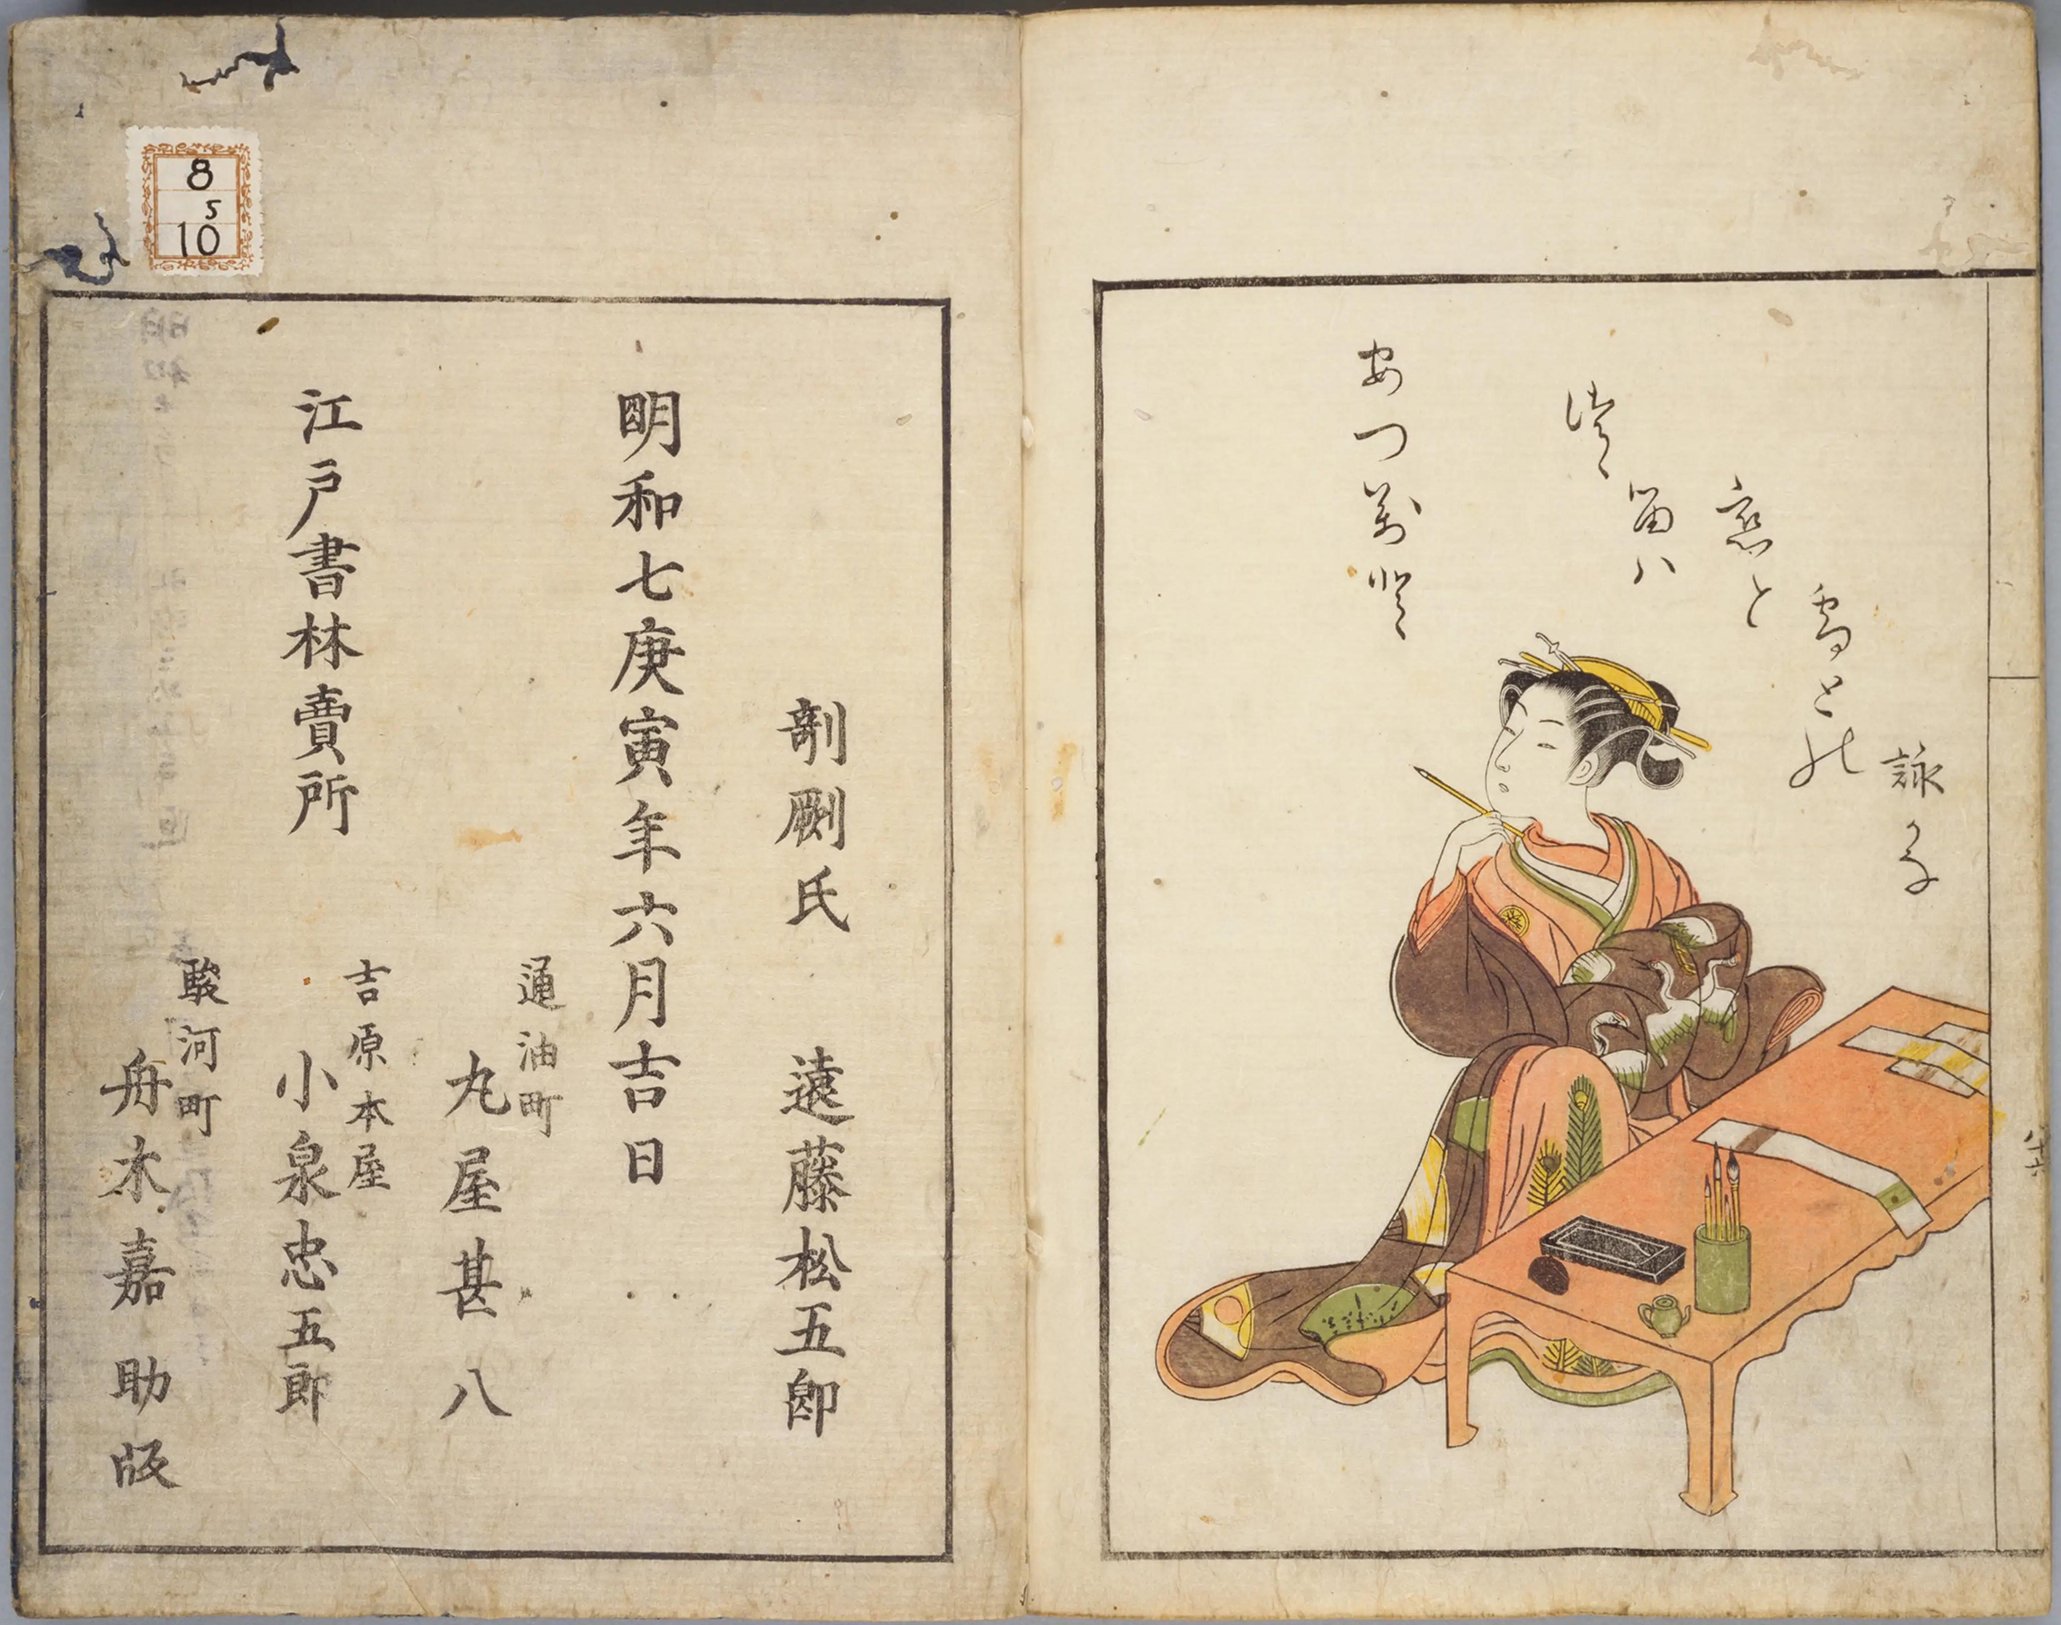 詠
恋と
剞劂氏　遠藤松五郎
明和七庚寅年六月吉日
通油町
丸屋甚八
江戸書林賣所
吉原本屋
小泉忠五郎
駿河町
舟木嘉助版
8
5
10